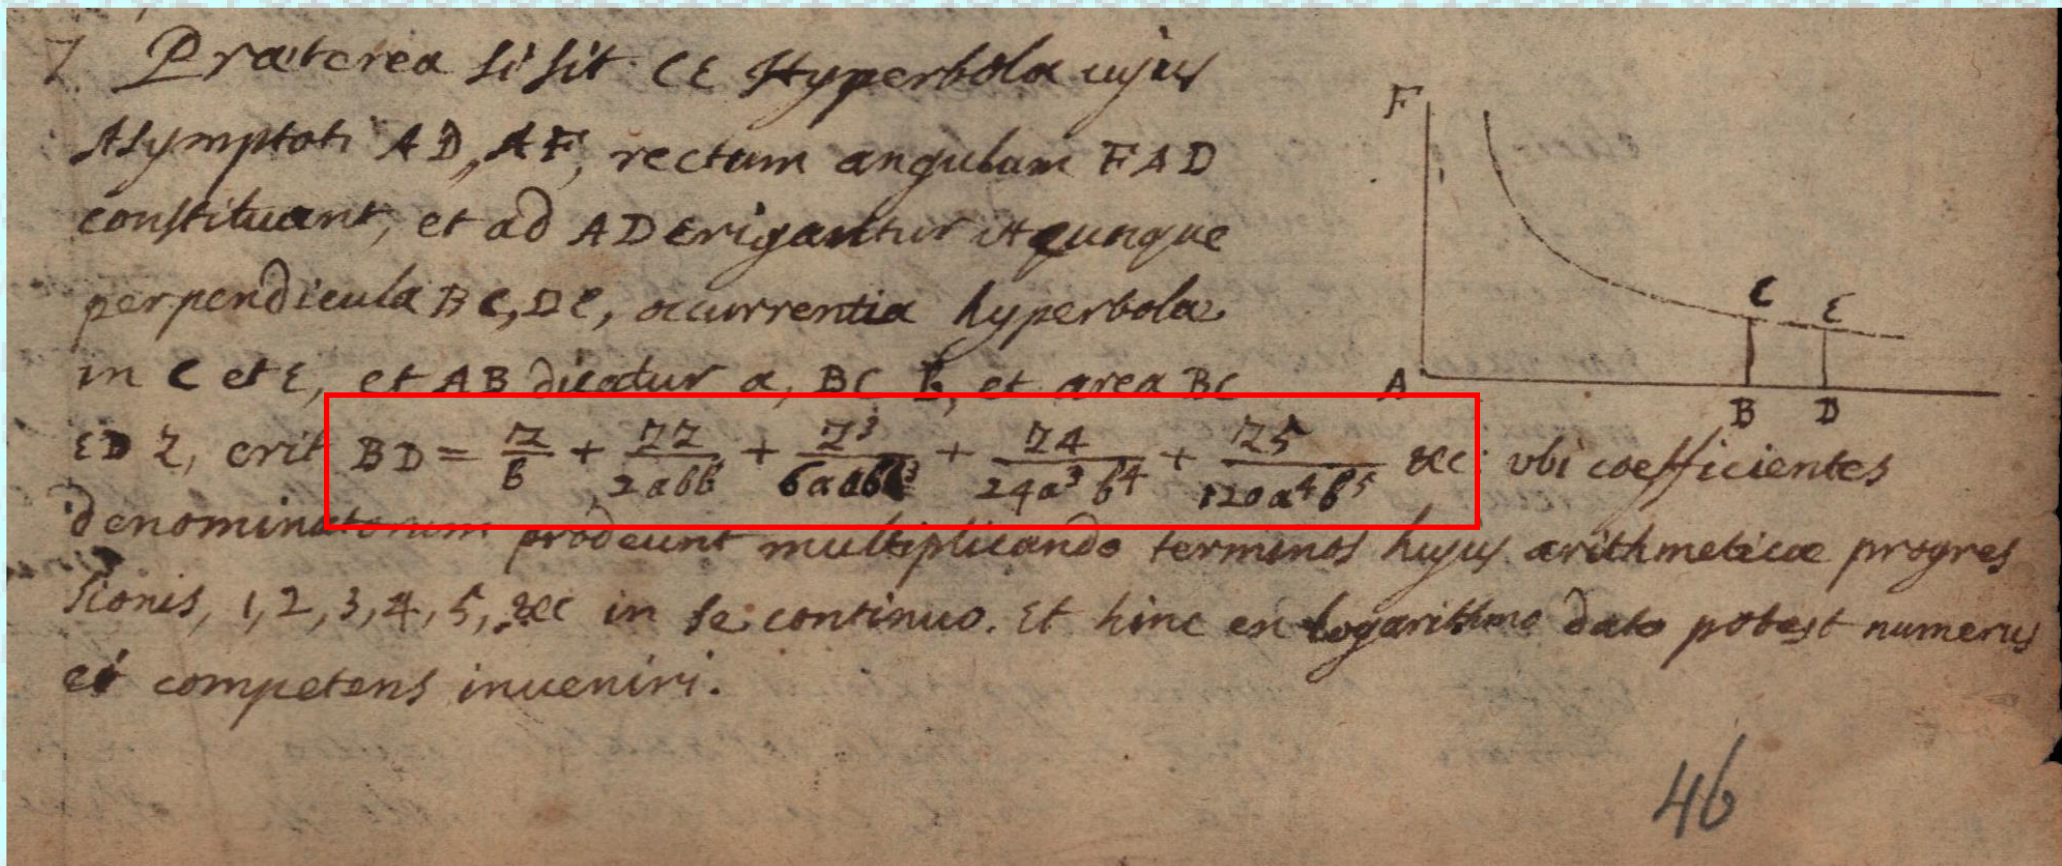 7. Præterea si sit CE Hyperbola cujus
Asymptoti AD, AF, rectum angulum FAD
constituant, et ad AD erigantur utcunque
perpendicula BC, DE, occurrentia hyperbolæ
in C et E, et AB dicatur a, BC b, et area BC
ED z, erit BD = z/b + zz/2abb + z³/6aabb³ + z4/24a³b4 + z5/120a⁴b⁵ &c: ubi coefficientes
denominatorum prodeunt multiplicando terminos hujus arithmeticæ progres
sionis, 1, 2, 3, 4, 5, &c in se continuo. Et hinc en logarithmo dato potest numerus
ei competens inveniri.
F
C
E
A
B
D
46